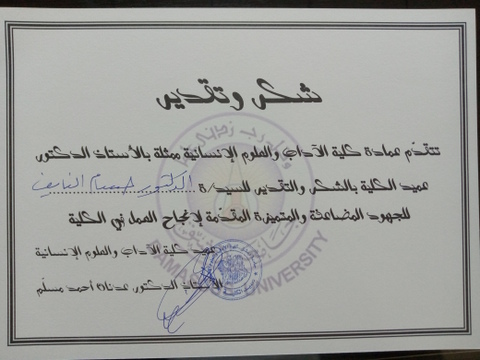 شكر وتقدير
تتقدّم عمادة كلية الآداب والعلوم الإنسانية ممثلة بالأستاذ الدكتور
عميد الكلية بالشكر والتقدير للسيد/ة الدكتور حسام النايف
للجهود المضاعفة والمتميزة المقدّمة لإنجاح العمل في الكلية
عميد كلية الآداب والعلوم الإنسانية
الأستاذ الدكتور عدنان أحمد مسلّم
وقل رب زدني علما
DAMASCUS UNIVERSITY